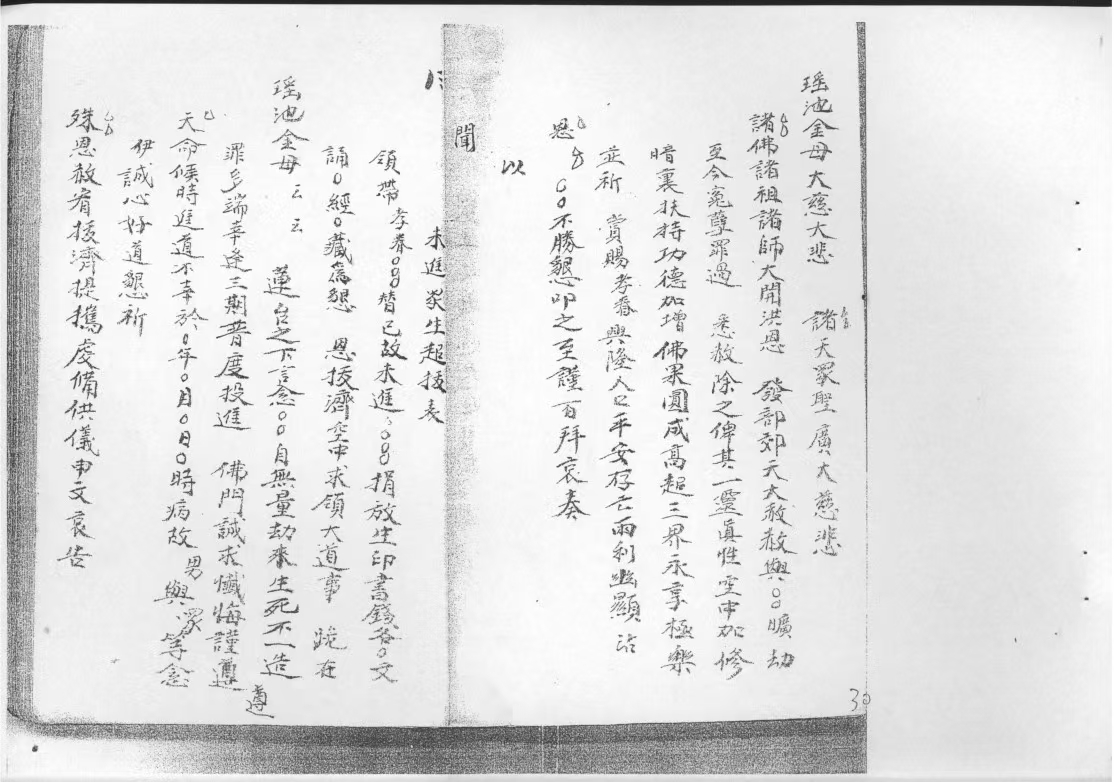 瑶池金母大慈大悲 諸天眾聖廣大慈悲
諸佛諸祖諸師大開洪恩 發部郊天大赦赦與○○曠劫
至今冤孽罪過 悉赦除之俾其一靈真性空中加修
暗裏扶持功德加增佛果圓成高超三界永享極樂
並祈 賞賜孝眷興隆人口平安存亡兩利幽顯沾
恩 ○○不勝懇叩之至謹百拜哀奏
以
聞
未進眾生超拔表
領帶孝眷○○替已故未進○○捐放生印書錢各○文
誦○經○藏為懇 恩拔濟空中求領大道事 跪在
瑶池金母云云 蓮台之下言念○○自無量劫來生死不一造
罪多端幸逢三期普度投進 佛門誠求懺悔謹遵
遵
天命候時進道不幸於○年○月○日○時病故 男與眾等念
伊誠心好道懇祈
殊恩赦宥拔濟提攜虔備供儀申文哀告
30